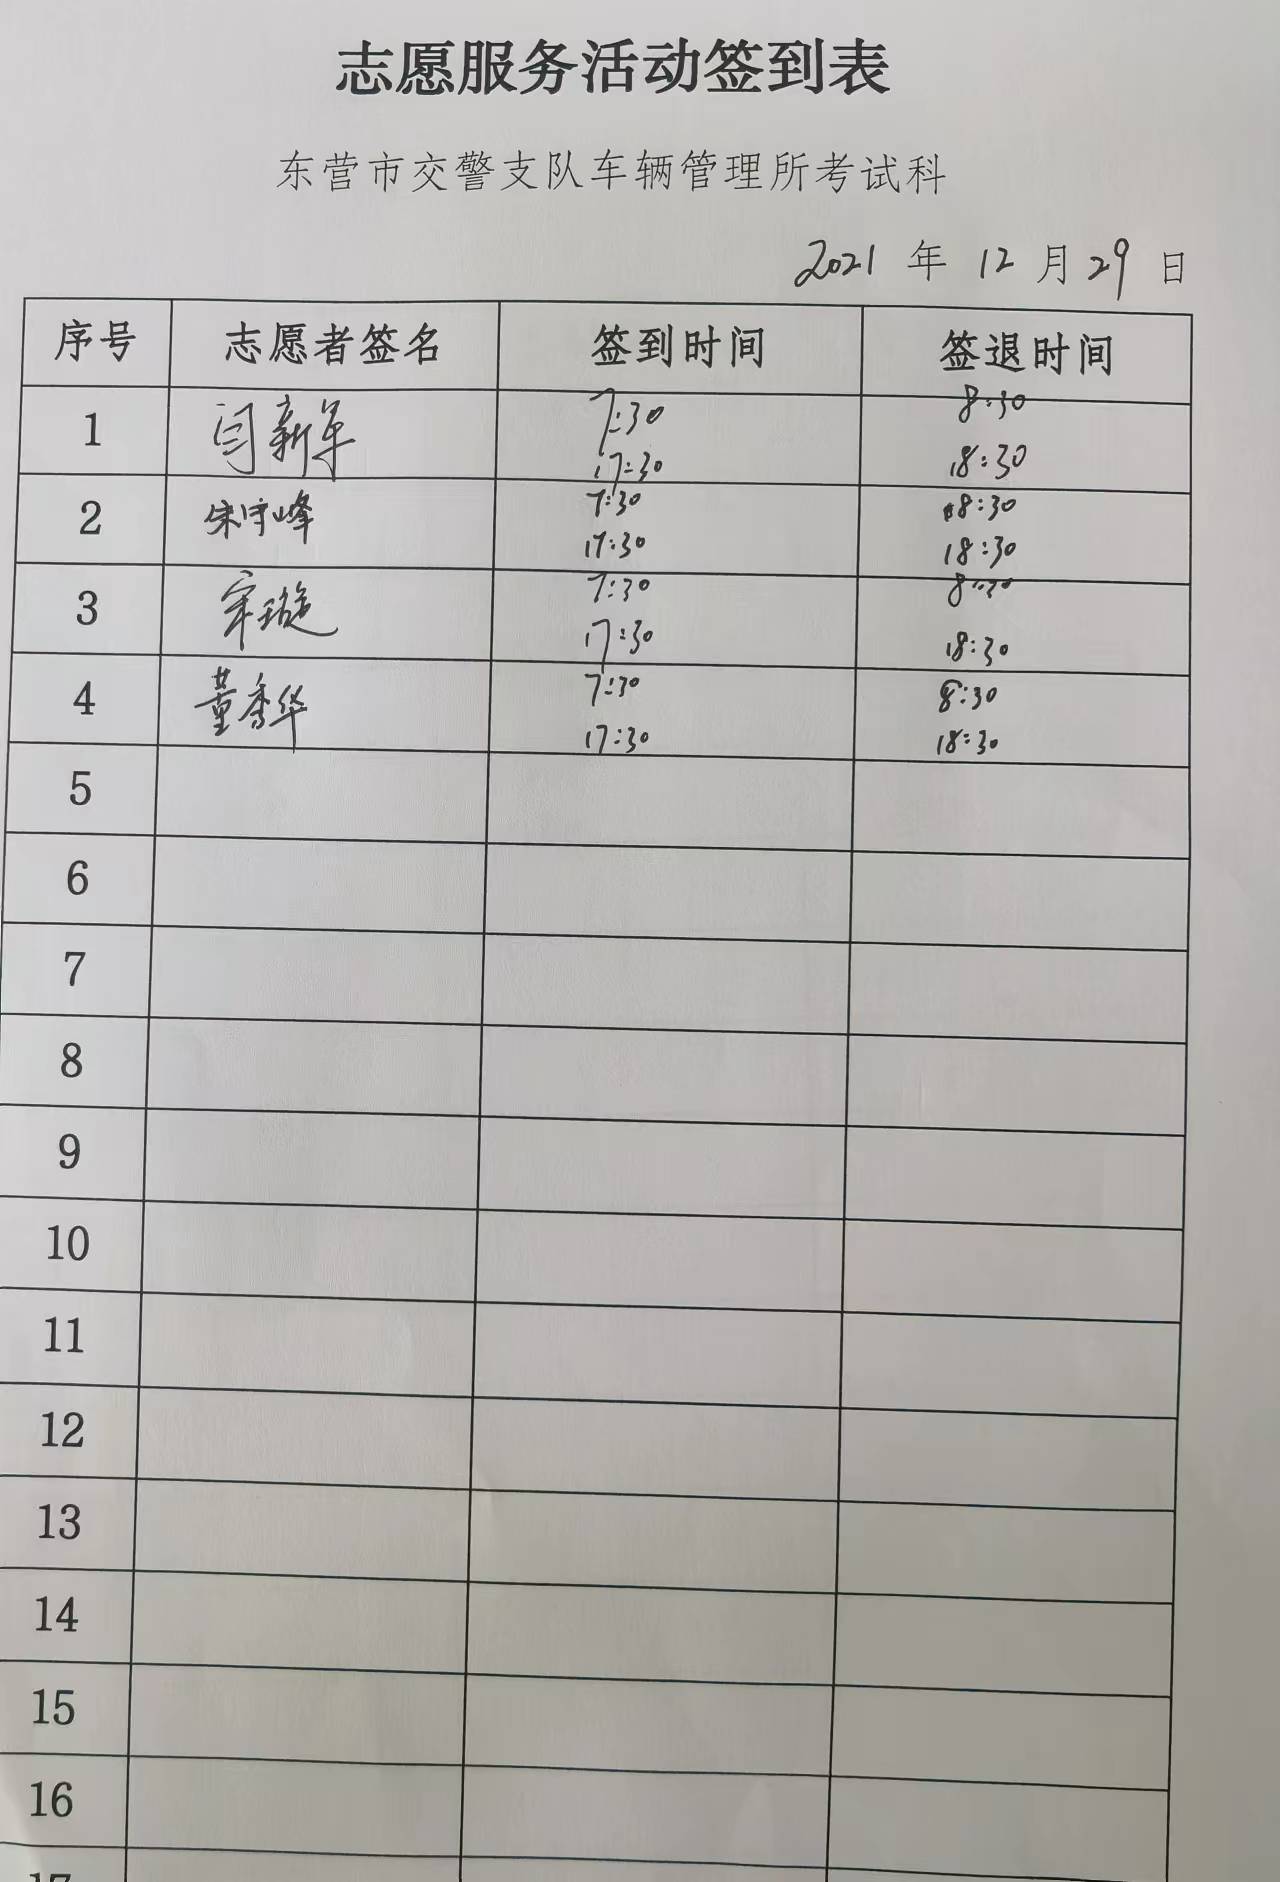 志愿服务活动签到表
东营市交警支队车辆管理所考试科
2021 年 12 月 29 日
序号 志愿者签名 签到时间 签退时间
1 闫新军 7:30 8:30
17:30 18:30
2 宋守峰 7:30 8:30
17:30 18:30
3 宋璇 7:30 8:30
17:30 18:30
4 董秀华 7:30 8:30
17:30 18:30
5
6
7
8
9
10
11
12
13
14
15
16
17